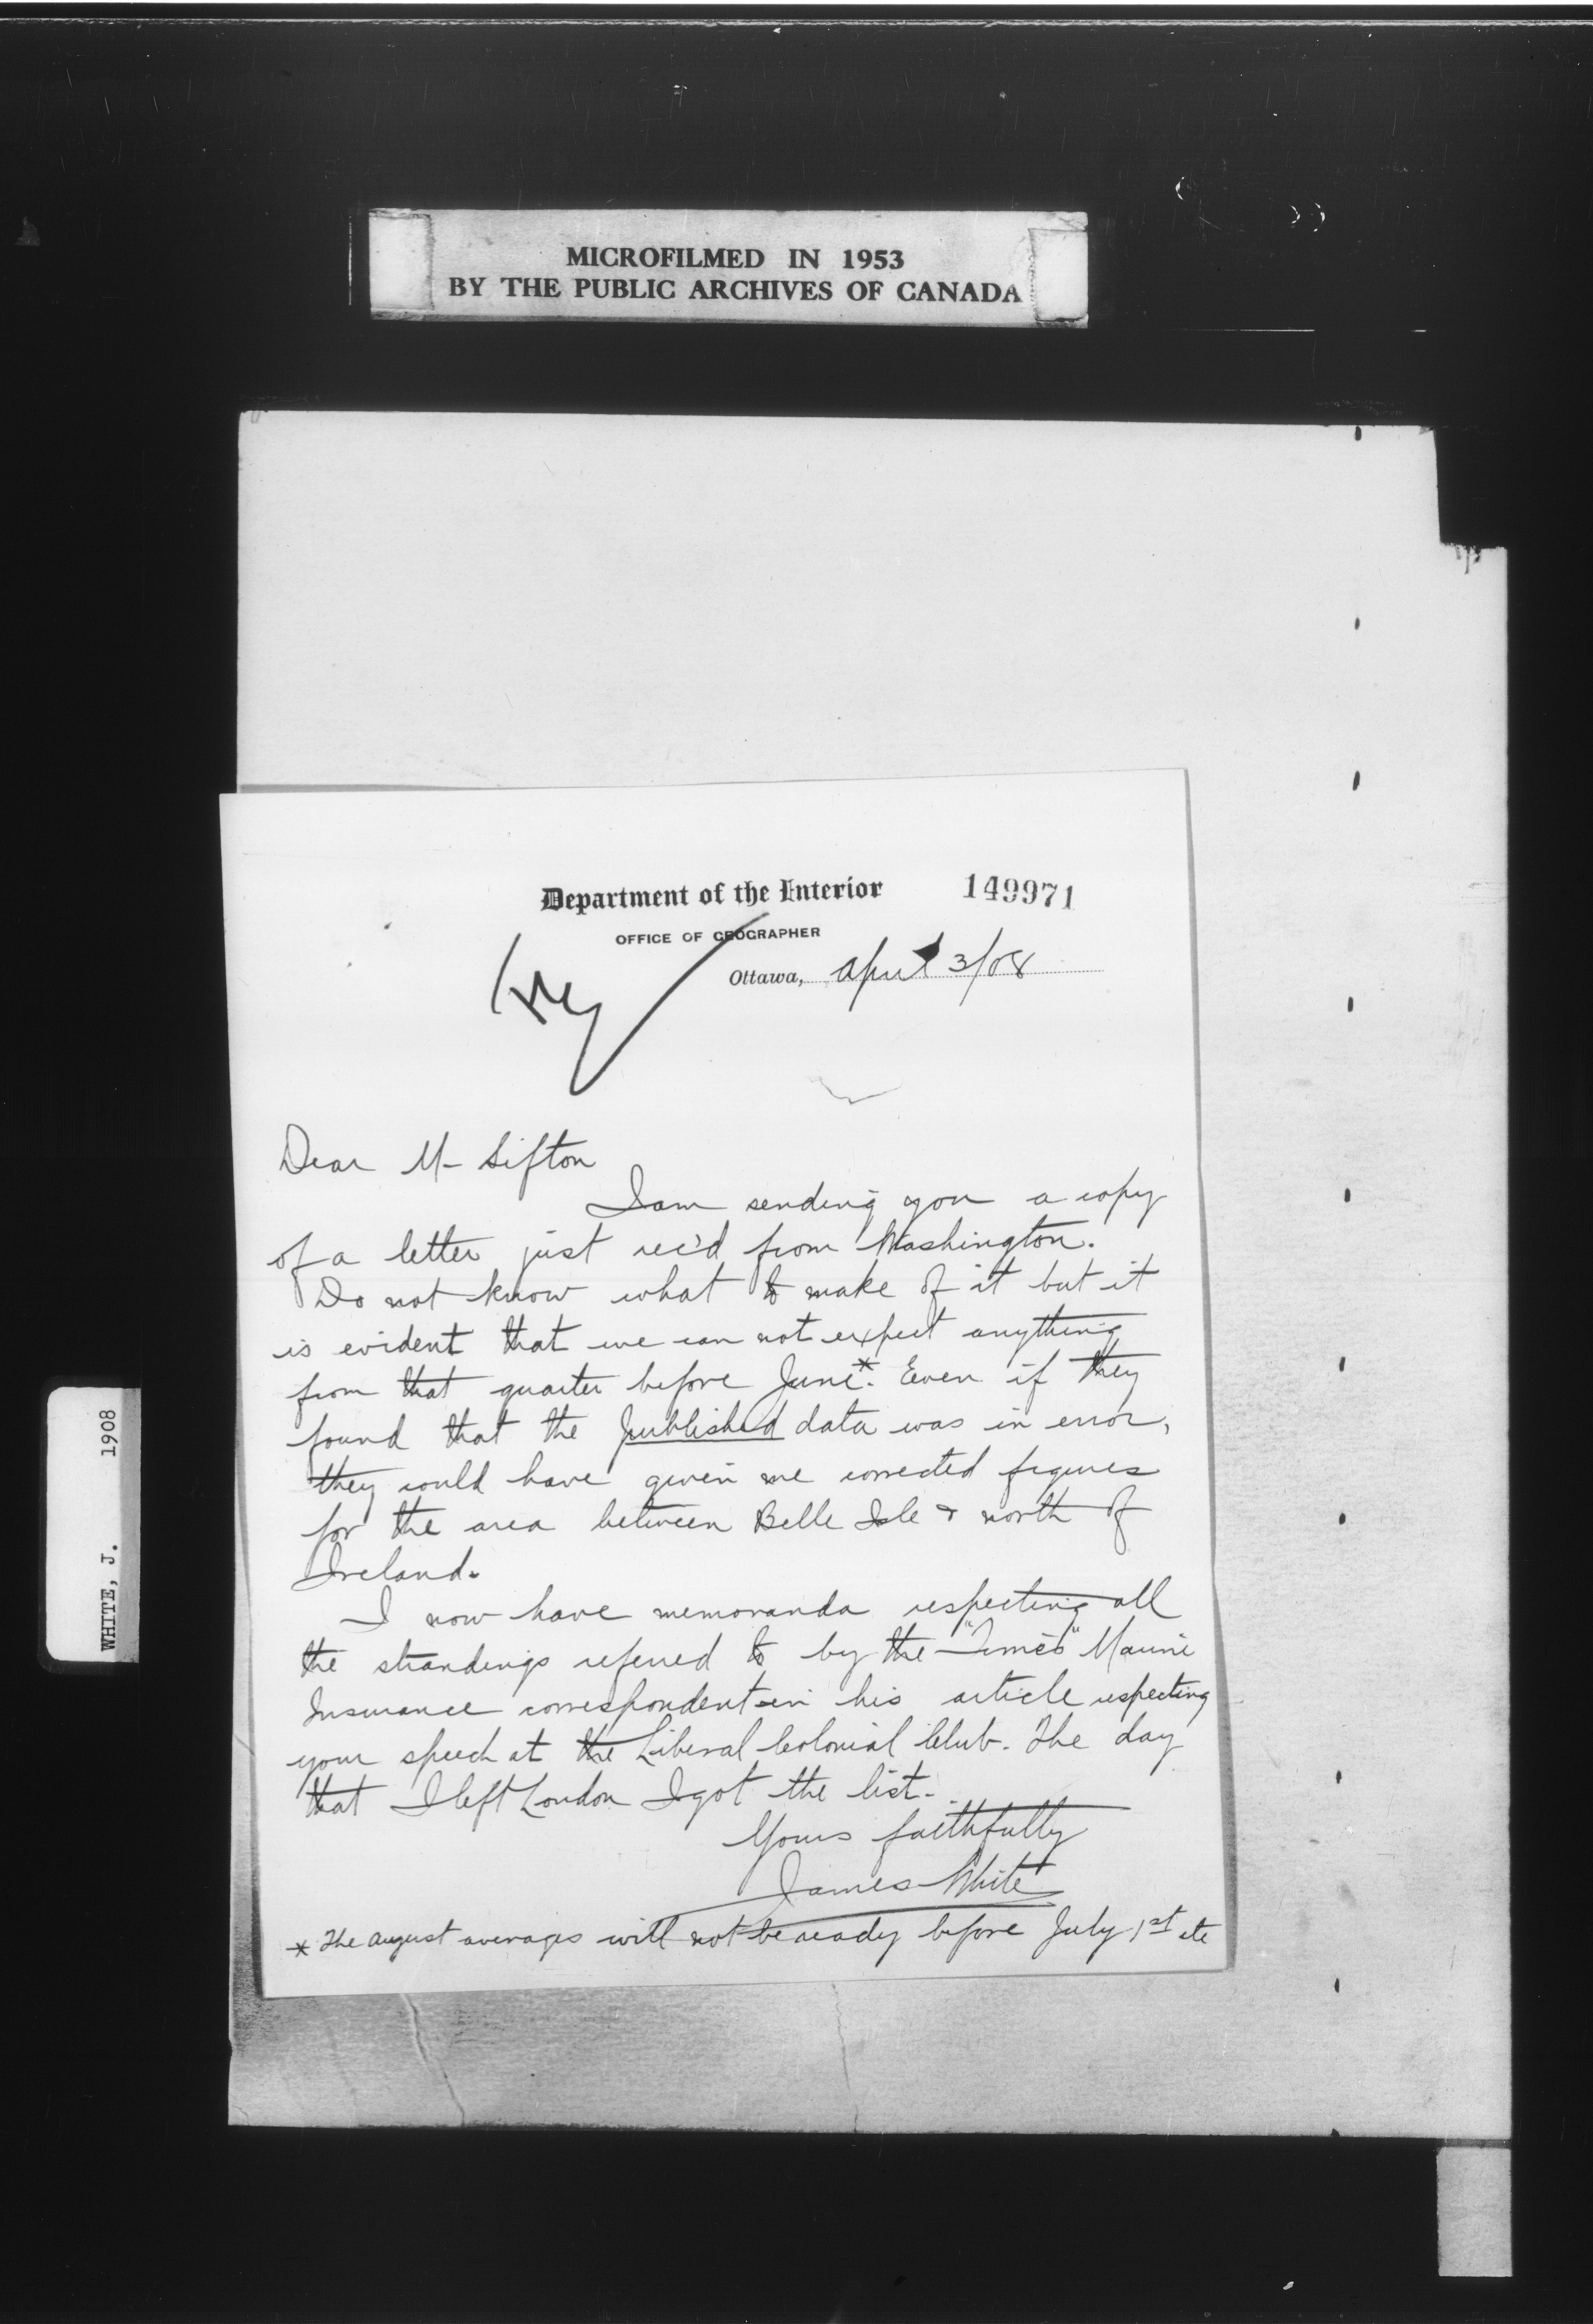 MICROFILMED IN 1953
BY THE PUBLIC ARCHIVES OF CANADA
Department of the Interior
149971
OFFICE OF GEOGRAPHER
Ottawa, April 3/08
Dear Mr Sifton
I am sending you a copy
of a letter just rec'd from Washington.
Do not know what to make of it but it
is evident that we can not expect anything
from that quarter before June*. Even if they
found that the published data was in error,
they could have given me corrected figures
for the area between Belle Isle & north of
Ireland.
I now have memoranda respecting all
the strandings referred to by the "Times" Marine
Insurance correspondent in his article respecting
your speech at the Liberal Colonial Club. The day
that I left London I got the list.
Yours faithfully
James White
* The August averages will not be ready before July 1st etc
WHITE, J. 1908